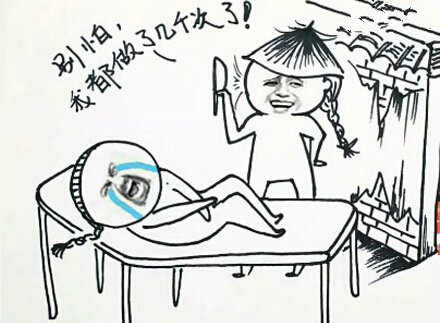 别怕，
我都做了几个次了！